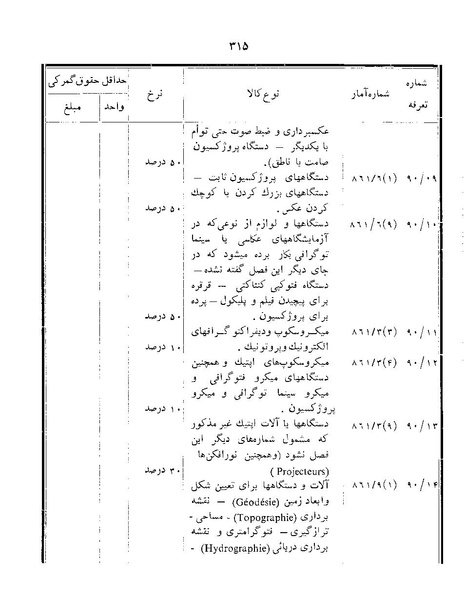 ۳۱۵
شماره تعرفه
شماره آمار
نوع کالا
نرخ
حداقل حقوق گمرکی
واحد
مبلغ
عکسبرداری و ضبط صوت حتی توأم
با یکدیگر – دستگاه پروژکسیون
صامت یا ناطق). ۵۰ درصد
۹۰/۰۹ ۸۶۱/۶(۱) دستگاههای پروژکسیون ثابت –
دستگاههای بزرگ کردن یا کوچک
کردن عکس. ۵۰ درصد
۹۰/۱۰ ۸۶۱/۶(۹) دستگاهها و لوازم از نوعی‌که در
آزمایشگاههای عکاسی یا سینما
توگرافی بکار برده میشود که در
جای دیگر این فصل گفته نشده –
دستگاه فتوکپی کنتاکتی – قرقره
برای پیچیدن فیلم و پلیکول – پرده
برای پروژکسیون. ۵۰ درصد
۹۰/۱۱ ۸۶۱/۳(۳) میکروسکوپ ودیفراکتو گرافهای
الکترونیک وپروتونیک. ۱۰ درصد
۹۰/۱۲ ۸۶۱/۳(۴) میکروسکوپ‌های اپتیک و همچنین
دستگاههای میکرو فتوگرافی و
میکرو سینما توگرافی و میکرو
پروژکسیون. ۱۰ درصد
۹۰/۱۳ ۸۶۱/۳(۹) دستگاهها یا آلات اپتیک غیر مذکور
که مشمول شماره‌های دیگر این
فصل نشود (وهمچنین نورافکن‌ها
(Projecteurs) ۳۰ درصد
۹۰/۱۴ ۸۶۱/۹(۱) آلات و دستگاهها برای تعیین شکل
وابعاد زمین (Géodésie) – نقشه
برداری (Topographie) - مساحی -
ترازگیری – فتوگرامتری و نقشه
برداری دریائی (Hydrographie) -